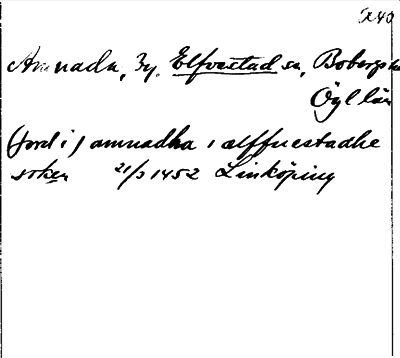 RA0
Amnada, By. Elfvestad sn, Bobergs h
Ögl län
(jord i) amnadha i ælffuestadhe
soken 21/3 1452 Linköping